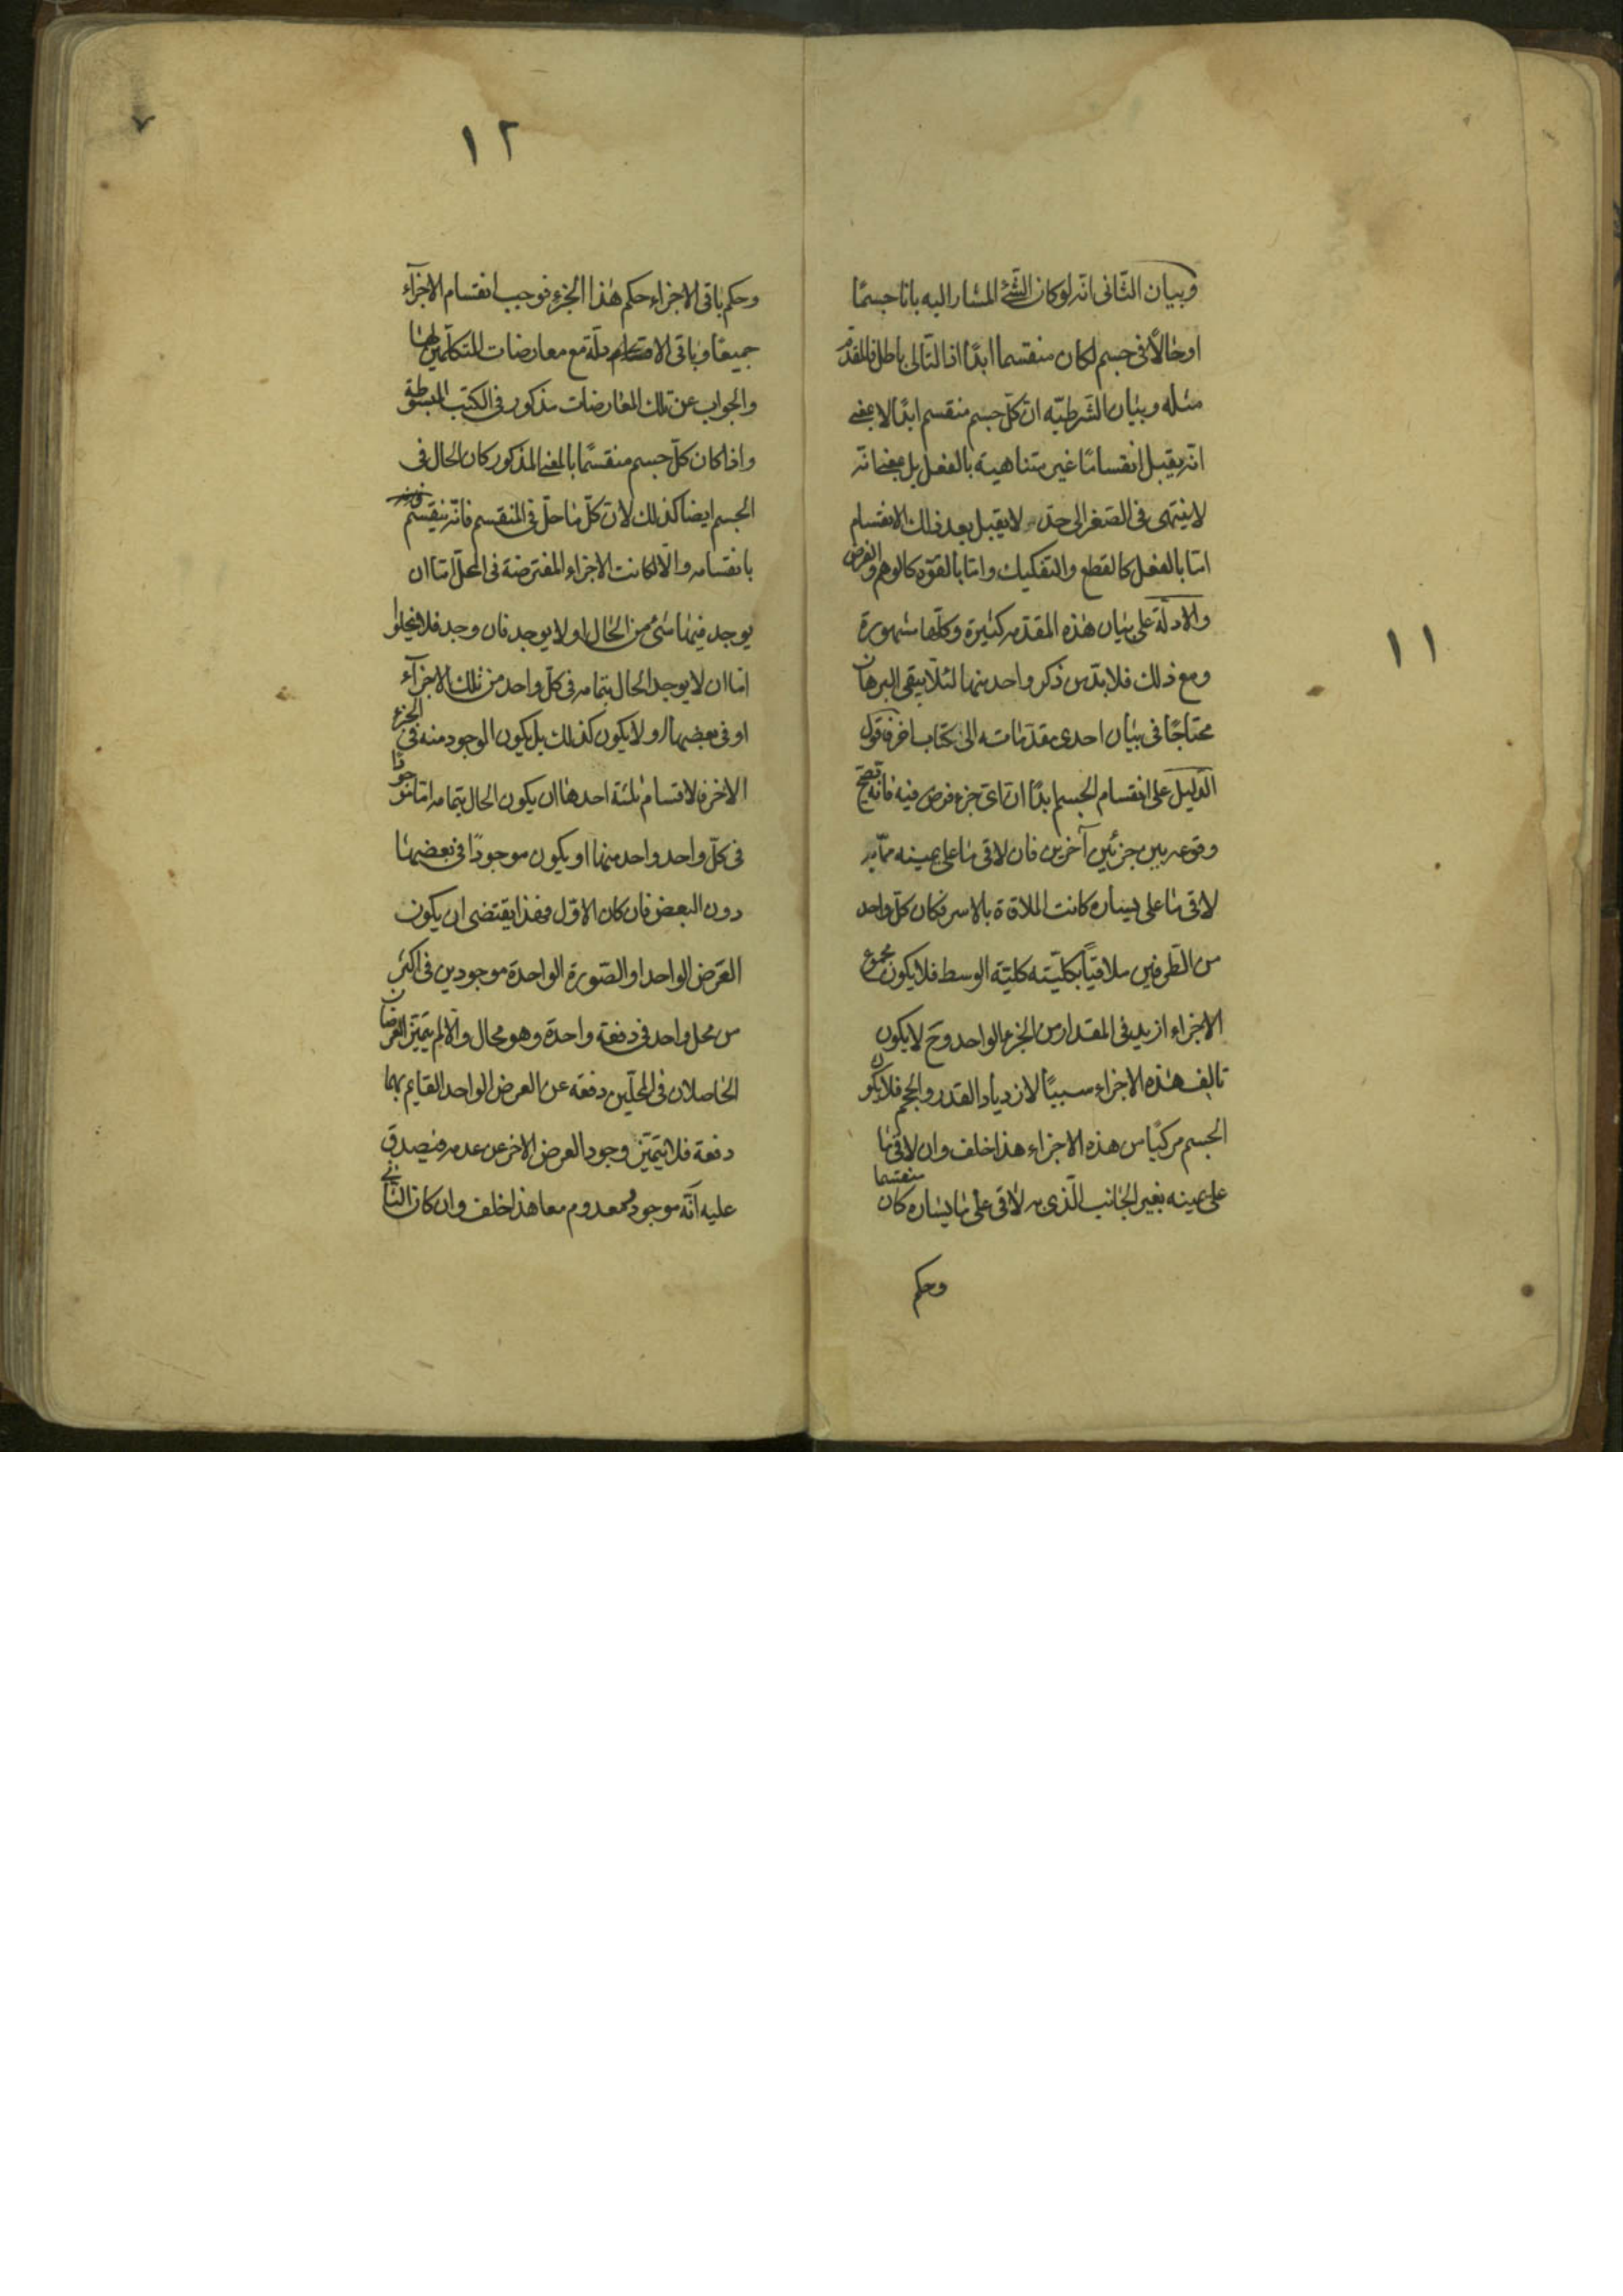 ١١
وبيان الثّانى انه لو كان الشّئ المشار اليه بانا جسمًا
او حالًا فى جسم لكان منقسما ابدًا اذا التّالى باطل فالمقدّم
مثله وبيان الشّرطيّه انّ كلّ جسم منقسم ابدًا لا بمعنى
انه يقبل انقسامًا غير متناهية بالفعل بل بمعنى انه
لا ينتهى فى الصّغر الى حدّ لا يقبل بعد ذلك الانقسام
امّا بالفعل كالقطع والتفكيك وامّا بالقوّه كالوهم والفرض
والادلّة على بيان هذه المقدّمه كثيرة وكلّها مشهورة
ومع ذلك فلا بدّ من ذكر واحد منها لئلّا يبقى البرهان
محتاجًا فى بيان احدى مقدّماته الى كتاب اخر فاقول
الدّليل على انقسام الجسم ابدًا انّ اىّ جزء فرض فيه فانّه يصحّ
وقوعه بين جزئين آخرين فان لاقى ما على يمينه ممّا به
لاقى ما على يساره كانت الملاقاة بالاسر فكان كلّ واحد
من الطّرفين ملاقيًا بكليّته كليّة الوسط فلا يكون مجموع
الاجزاء ازيد فى المقدار من الجزء الواحد وح لا يكون
تالیف هذه الاجزاء سببًا لازدياد القدر والحجم فلا يكون
الجسم مركبًا من هذه الاجزاء هذا خلف وان لاقى ما
على يمينه بغير الجانب الّذى به لاقى على ما يساره كان منقسما
وحكم
١٢
وحكم باقى الاجزاء حكم هذا الجزء فوجب انقسام الاجزآء
جميعًا وباقى الادلّة مع معارضات المتكلّمين لها
والجواب عن تلك المعارضات مذكور فى الكتب المبسوطة
واذا كان كلّ جسم منقسمًا بالمعنى المذكور كان الحال فى
الجسم ايضا كذلك لانّ كلّ ما حلّ فى المنقسم فانّه ينقسم
بانقسامه والّا لكانت الاجزاء المفترضة فى المحلّ امّا ان
يوجد فيها شئ من الحال او لا يوجد فان وجد فلا يخلوا
امّا ان لا يوجد الحال بتمامه فى كلّ واحد من تلك الاجزآء
او فى بعضها او لا يكون كذلك بل يكون الموجود منه فى الجزء
الاخر فالاقسام ثلثة احدها ان يكون الحال بتمامه امّا موجودًا
فى كلّ واحد واحد منها او يكون موجودًا فى بعضها
دون البعض فان كان الاوّل فهذا يقتضى ان يكون
العرض الواحد او الصّورة الواحدة موجودين فى اكثر
من محل واحد فى دفعة واحدة وهو محال والّا لم يتميّز العرضان
الحاصلان فى المحلّين دفعة عن العرض الواحد القايم بهما
دفعة فلا يتميّز وجود العرض الاخر عن عدمه فيصدق
عليه انّه موجود ومعدوم معا هذا خلف وان كان الثّانى